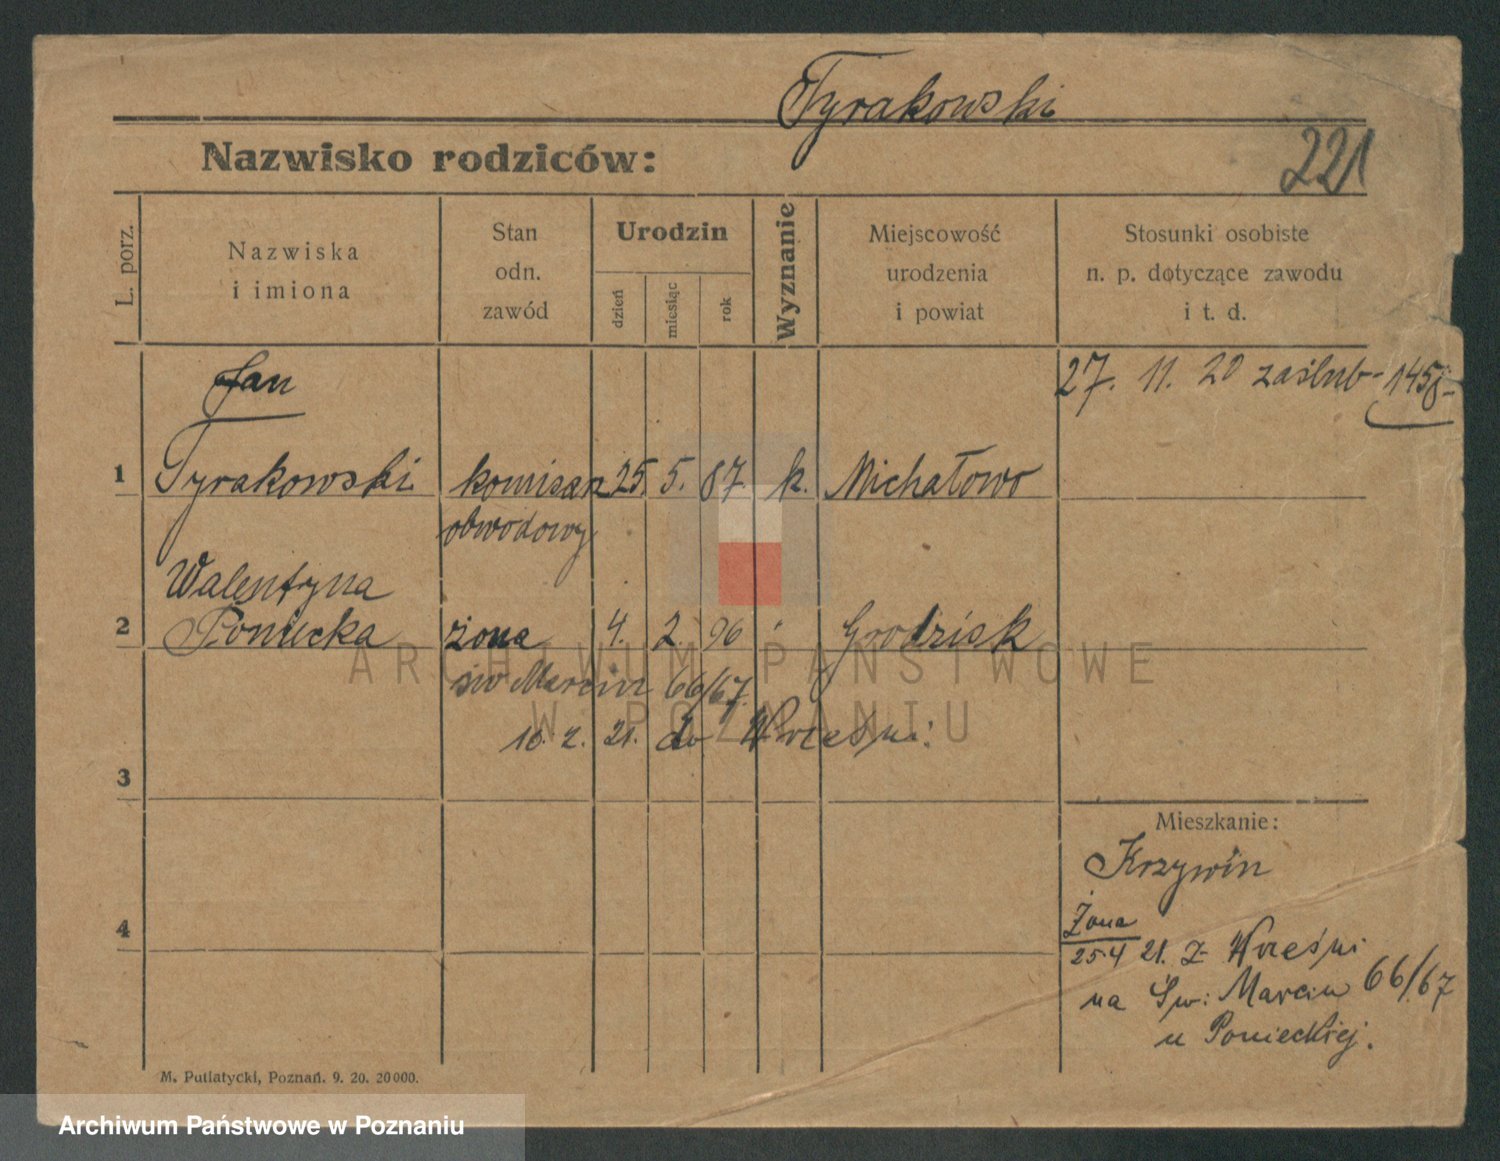 Tyrakowski
Nazwisko rodziców:
221
L. porz.
Nazwiska
i imiona
Stan
odn.
zawód
Urodzin
dzień
miesiąc
rok
Wyznanie
Miejscowość
urodzenia
i powiat
Stosunki osobiste
n. p. dotyczące zawodu
i t. d.
Jan
27. 11. 20 zaślub-
1
Tyrakowski komisarz 25. 5. 87. k. Michałowo
obwodowy
Walentyna
2
Poniecka żona 4. 2. 96 " Grodzisk
św Marcin 66/67.
16. 2. 21. do Wrześni.
3
Mieszkanie:
Krzywiń
4
Żona
25 4 21. z Wrześni
na Św: Marcin 66/67
u Ponieckiej.
M. Putiatycki, Poznań. 9. 20. 20000.
ARCHIWUM PAŃSTWOWE
W POZNANIU
Archiwum Państwowe w Poznaniu